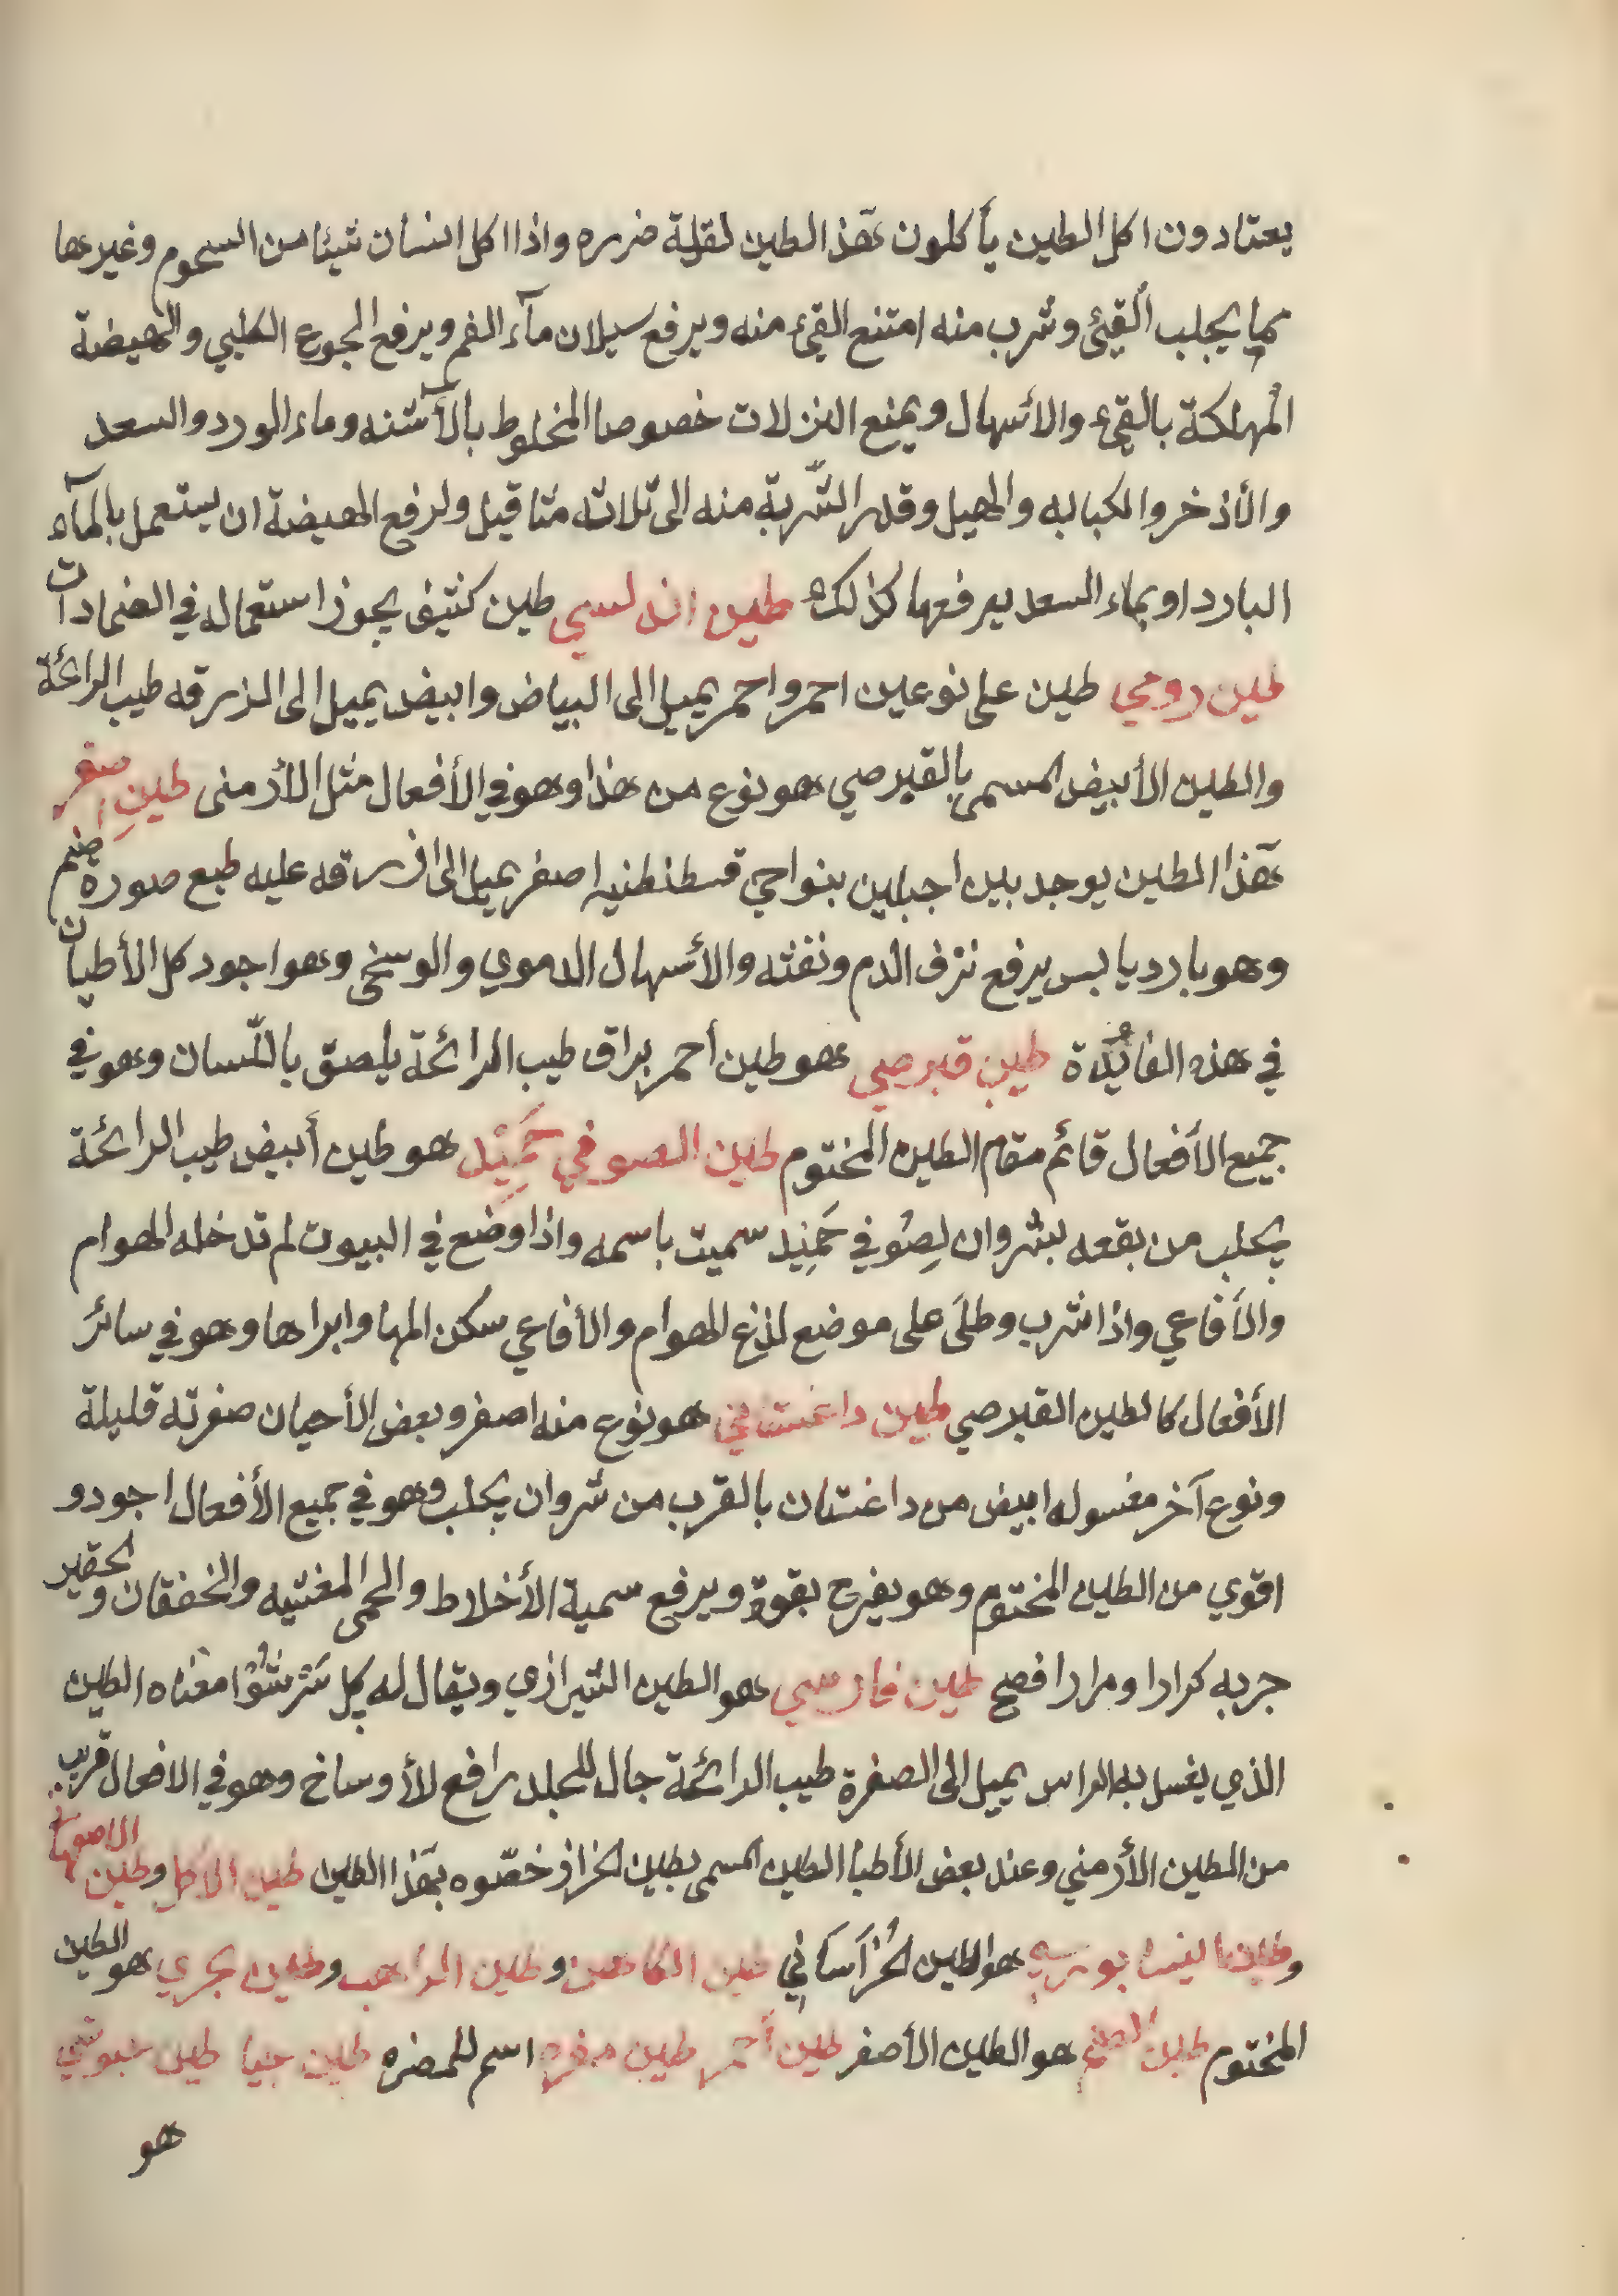 يعتادون اكل الطين يأكلون هٓذ الطين لقلية ضرره واذا اكل انسان شيئا من السموم وغيرها
مما يجلب القيئ وشرب منه امتنع القيئ منه ويرفع سيلان مآء الفم ويرفع الجوع الكلبي والهيضة
المهلكة بالقيء والأسهال ويمنع النزلات خصوصا المخلوط بالآشنه وماء الورد والسعد
والأذخر والكبابه والهيل وقدر الشّربة منه الى ثلاثه مثاقيل ولرفع الهيضة ان يستعمل بالمآء
البارد او بماء السعد يرفعها كذلك طين اندلسي طين كثيف يجوز استعماله في الضمادات
طين رومي طين على نوعين احمر واحمر يميل الى البياض وابيض يميل الى الزرقه طيب الرائحة
والطين الأبيض المسمى بالقبرصي هو نوع من هذا وهو في الأفعال مثل الأرمنى طين اصفر
هٓذا الطين يوجد بين اجبلين بنواحي قسطنطنيه اصفر يميل الى ازرقه عليه طبع صورة صنم
وهو بارد يابس يرفع نزف الدم ونفثه والأسهال الدموي والوسخى وهو اجود كل الأطيان
في هذه الفائدة طين قبرصي هو طين أحمر براق طيب الرائحة يلصق باللّسان وهو في
جميع الأفعال قائم مقام الطين المختوم طين الصوفي حَمِيْد هو طين أبيض طيب الرائحة
يجلب من بقعه بشروان لِصُوفي حَمِيد سميت باسمه واذا وضع في البيوت لم تدخله الهوام
والأفاعي واذا شرب وطلَى على موضع لذغ الهوام والأفاعي سكن المها وابراها وهو في سائر
الأفعال كالطين القبرصي طين داغستاني هو نوع منه اصفر وبعض الأحيان صفرته قليلة
ونوع آخر مغسوله ابيض من داغستان بالقرب من شروان يجلب وهو في جميع الأفعال اجود و
اقوي من الطين المختوم وهو يفرح بقوة ويرفع سمية الأخلاط والحمى المغشيه والخفقان والحقير
جربه كرارا ومرارا فصح طين فارسي هو الطين الشيرازي ويقال له كل سَرْشُوْا معناه الطين
الذي يغسل به الراس يميل الى الصفرة طيب الرائحة جال للجلد رافع لأوساخ وهو في الافعال قريب
من الطين الأرمني وعند بعض الأطبا الطين المسمى بطين الخزاف خصّوه بهٓذا الطين طين الأكل وطين
وطين نيشابوريه هو الطين الخُرَاسَاني طين الكاهن وطين الراهب وطين بحري هو الطين
المختوم طين الصنم هو الطين الأصفر طين أحمر طين مغره اسم للمضره طين جيا طين
هو